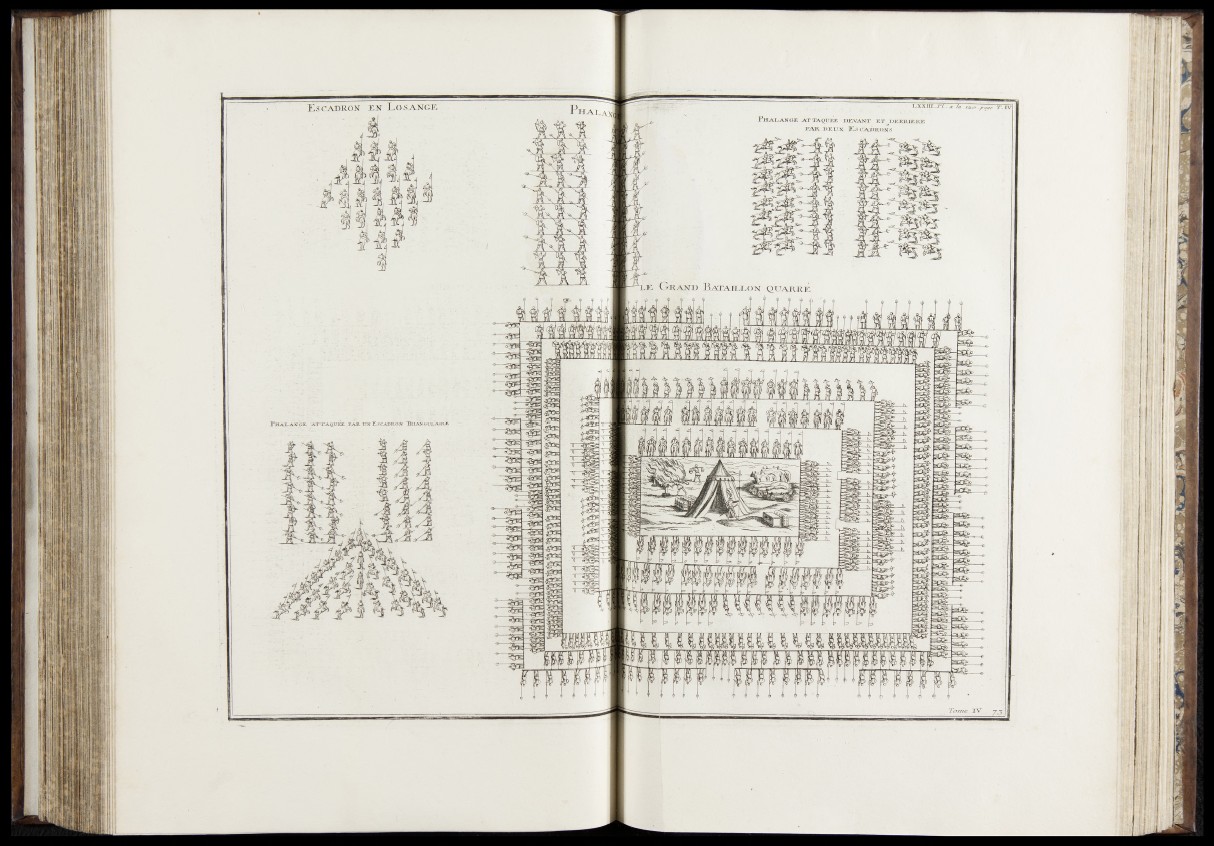 ESCADRON EN LOSANGE
PHALANGE
LXXIII. Pl. a la page T. IV
PHALANGE ATTAQUEE DEVANT ET DERRIERE
PAR DEUX ESCADRONS
LE GRAND BATAILLON QUARRE
PHALANGE ATTAQUEE PAR UN ESCADRON TRIANGULAIRE
Tome IV 73